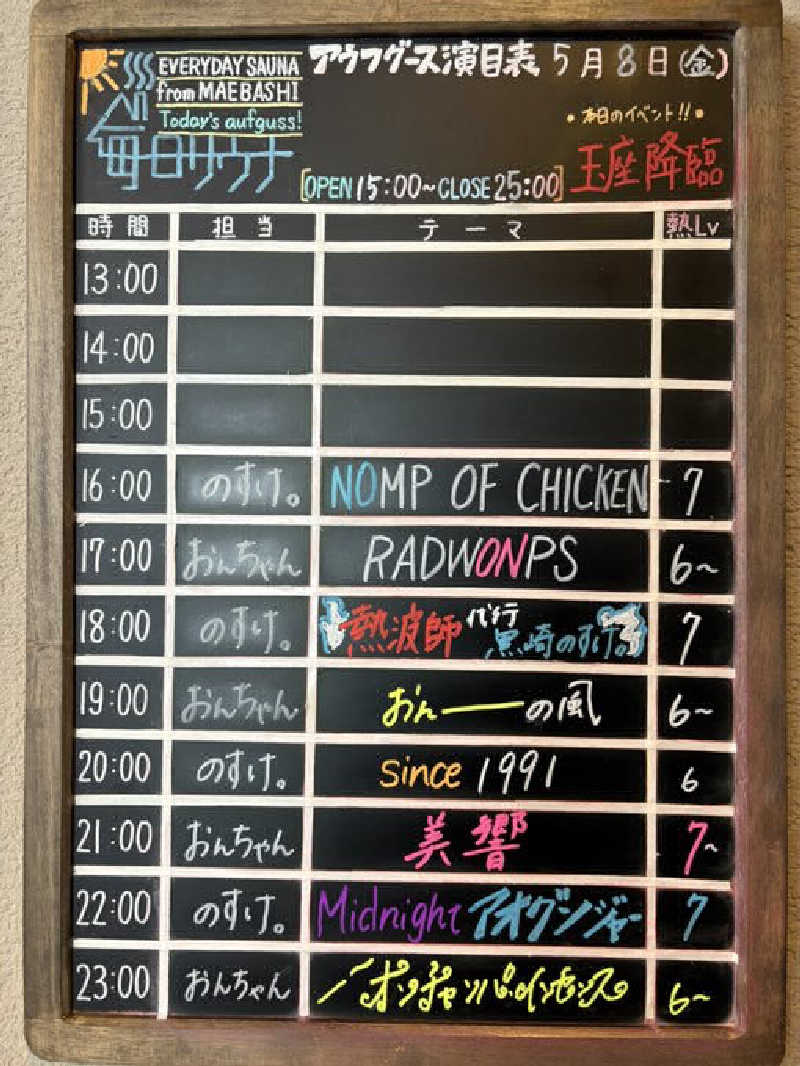 EVERYDAY SAUNA
from MAEBASHI
Today's aufguss!
毎日サウナ
アウフグース演目表 5月8日(金)
・本日のイベント!!・
玉座降臨
[OPEN 15:00~CLOSE 25:00]
時間 担当 テーマ 熱Lv
13:00
14:00
15:00
16:00 のすけ。 NOMP OF CHICKEN 7
17:00 おんちゃん RADWONPS 6~
18:00 のすけ。 熱波師代行 黒崎のすけ。 7
19:00 おんちゃん おん──の風 6~
20:00 のすけ。 since 1991 6
21:00 おんちゃん 美響 7~
22:00 のすけ。 Midnight アオグンジャー 7
23:00 おんちゃん 6~